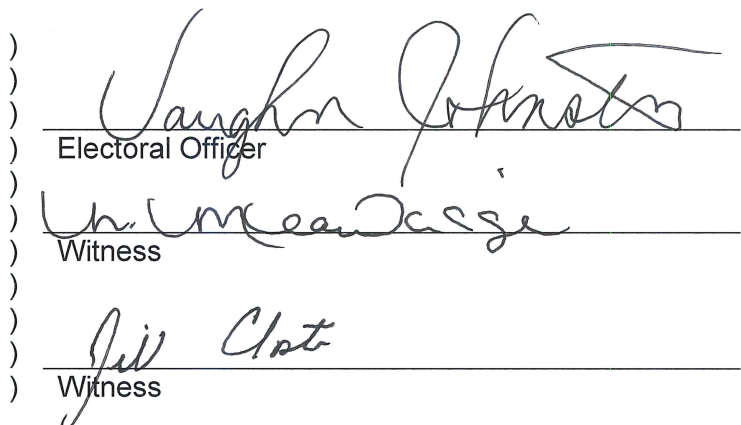 )
)
) Vaughn Johnston
) Electoral Officer
)
)
) Witness
)
)
) Jill
) Witness